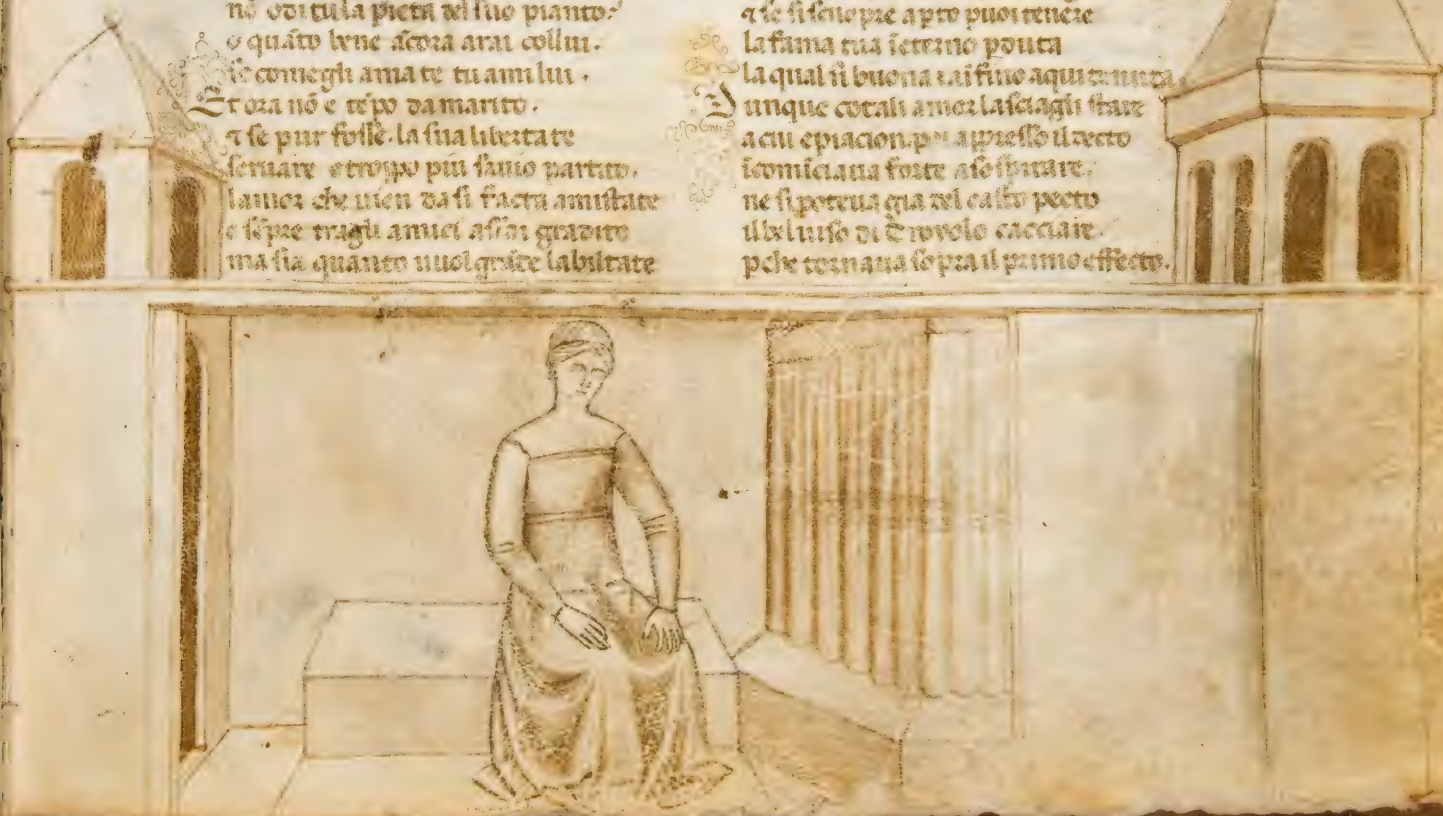 nō odi tu la pieta del suo pianto.
o quāto bene ācora arai collui.
se comegli ama te tu ami lui.
Et ora nō e tēpo da marito.
⁊ se pur fosse. la sua libertate
seruare e troppo piu sauio partito.
lamor che uien da si facta amistate
e sēpre tragli amici assai gradito
ma sia quanto uuol grāde la biltate
⁊ se si scuopre apto puoi tenere
la fama tua īeterno pduta
la qual sì buona fino aqui tenuta.
Dunque cotali amor lasciagli stare
a cui epiacion. appresso il decto
īcominciaua forte a sospirare.
ne si poteua gia del casto pecto
il bel uiso di Troyolo cacciare.
pche tornaua sopra il primo effecto.